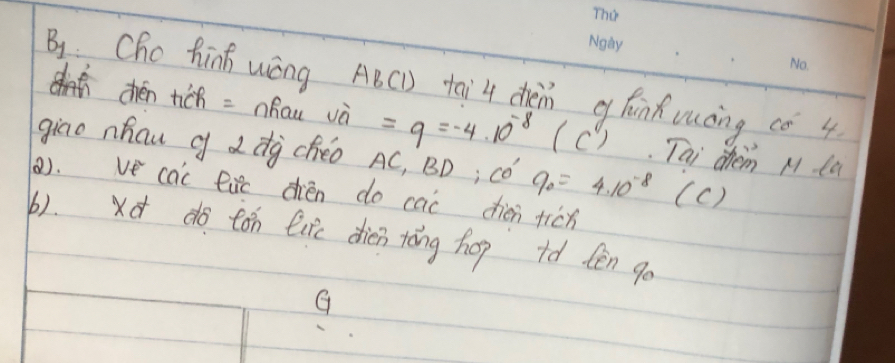 Thứ
Ngày
No.
B1. Cho hình vuông ABCD tại 4 điểm of hình vuông có 4
điện tích = nhau và = q = -4.10^-8 (C). Tại điểm M là
giao nhau of 2 đg chéo AC, BD; có q0 = 4.10^-8 (C)
a). Vẽ các lực điện do các điện tích
b). Xđ độ lớn lực điện tổng hợp td lên q0
G